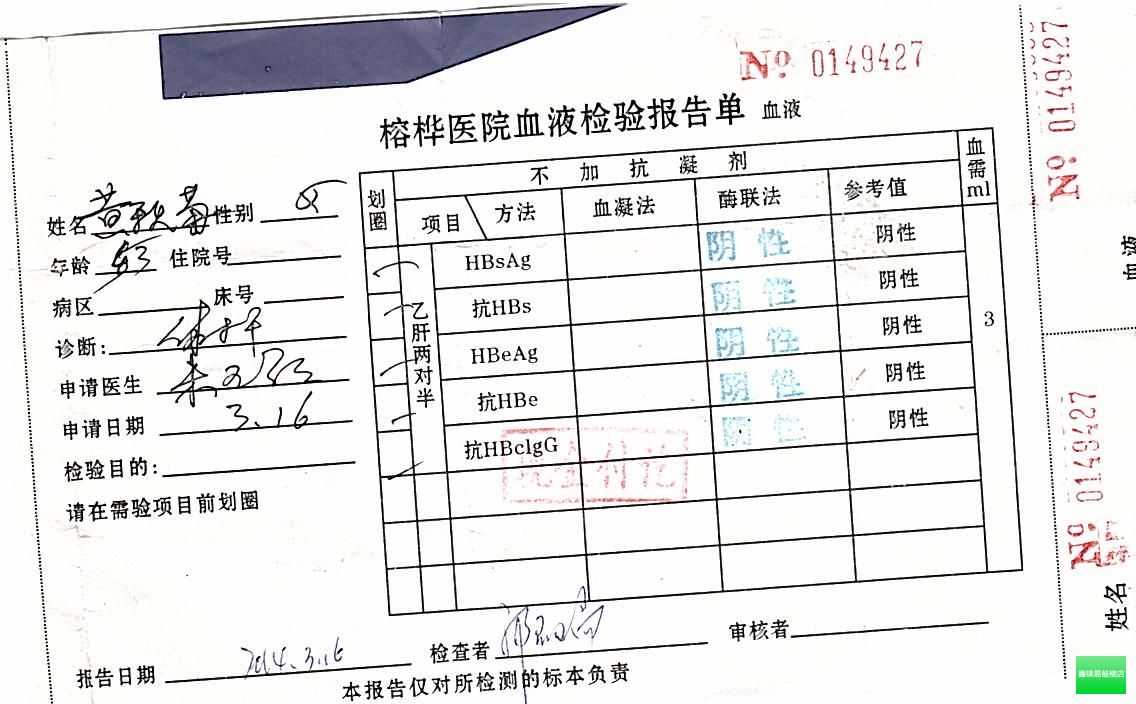 № 0149427
榕桦医院血液检验报告单 血液
姓名 性别 女
年龄 住院号
病区 床号
诊断: 体检
申请医生
申请日期 3.16
检验目的:
请在需验项目前划圈
划圈 不加抗凝剂 血需ml
项目 方法 血凝法 酶联法 参考值
乙肝两对半
HBsAg 阴性 阴性
抗HBs 阴性 阴性
HBeAg 阴性 阴性
抗HBe 阴性 阴性
抗HBclgG 阴性 阴性
3
现金付讫
报告日期 2014.3.16 检查者 审核者
本报告仅对所检测的标本负责
№ 0149427
血液
№ 0149427
姓名
鑫锦易鼓楼店